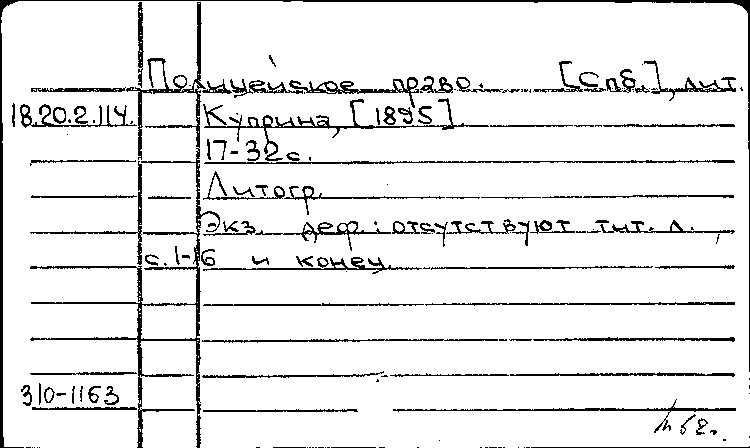 Полицейское право. [Спб.], лит.
18.20.2.114. Куприна, [1895]
17-32 с.
Литогр.
Экз. деф.: отсутствуют тит. л.,
с. 1-16 и конец.
310-1163